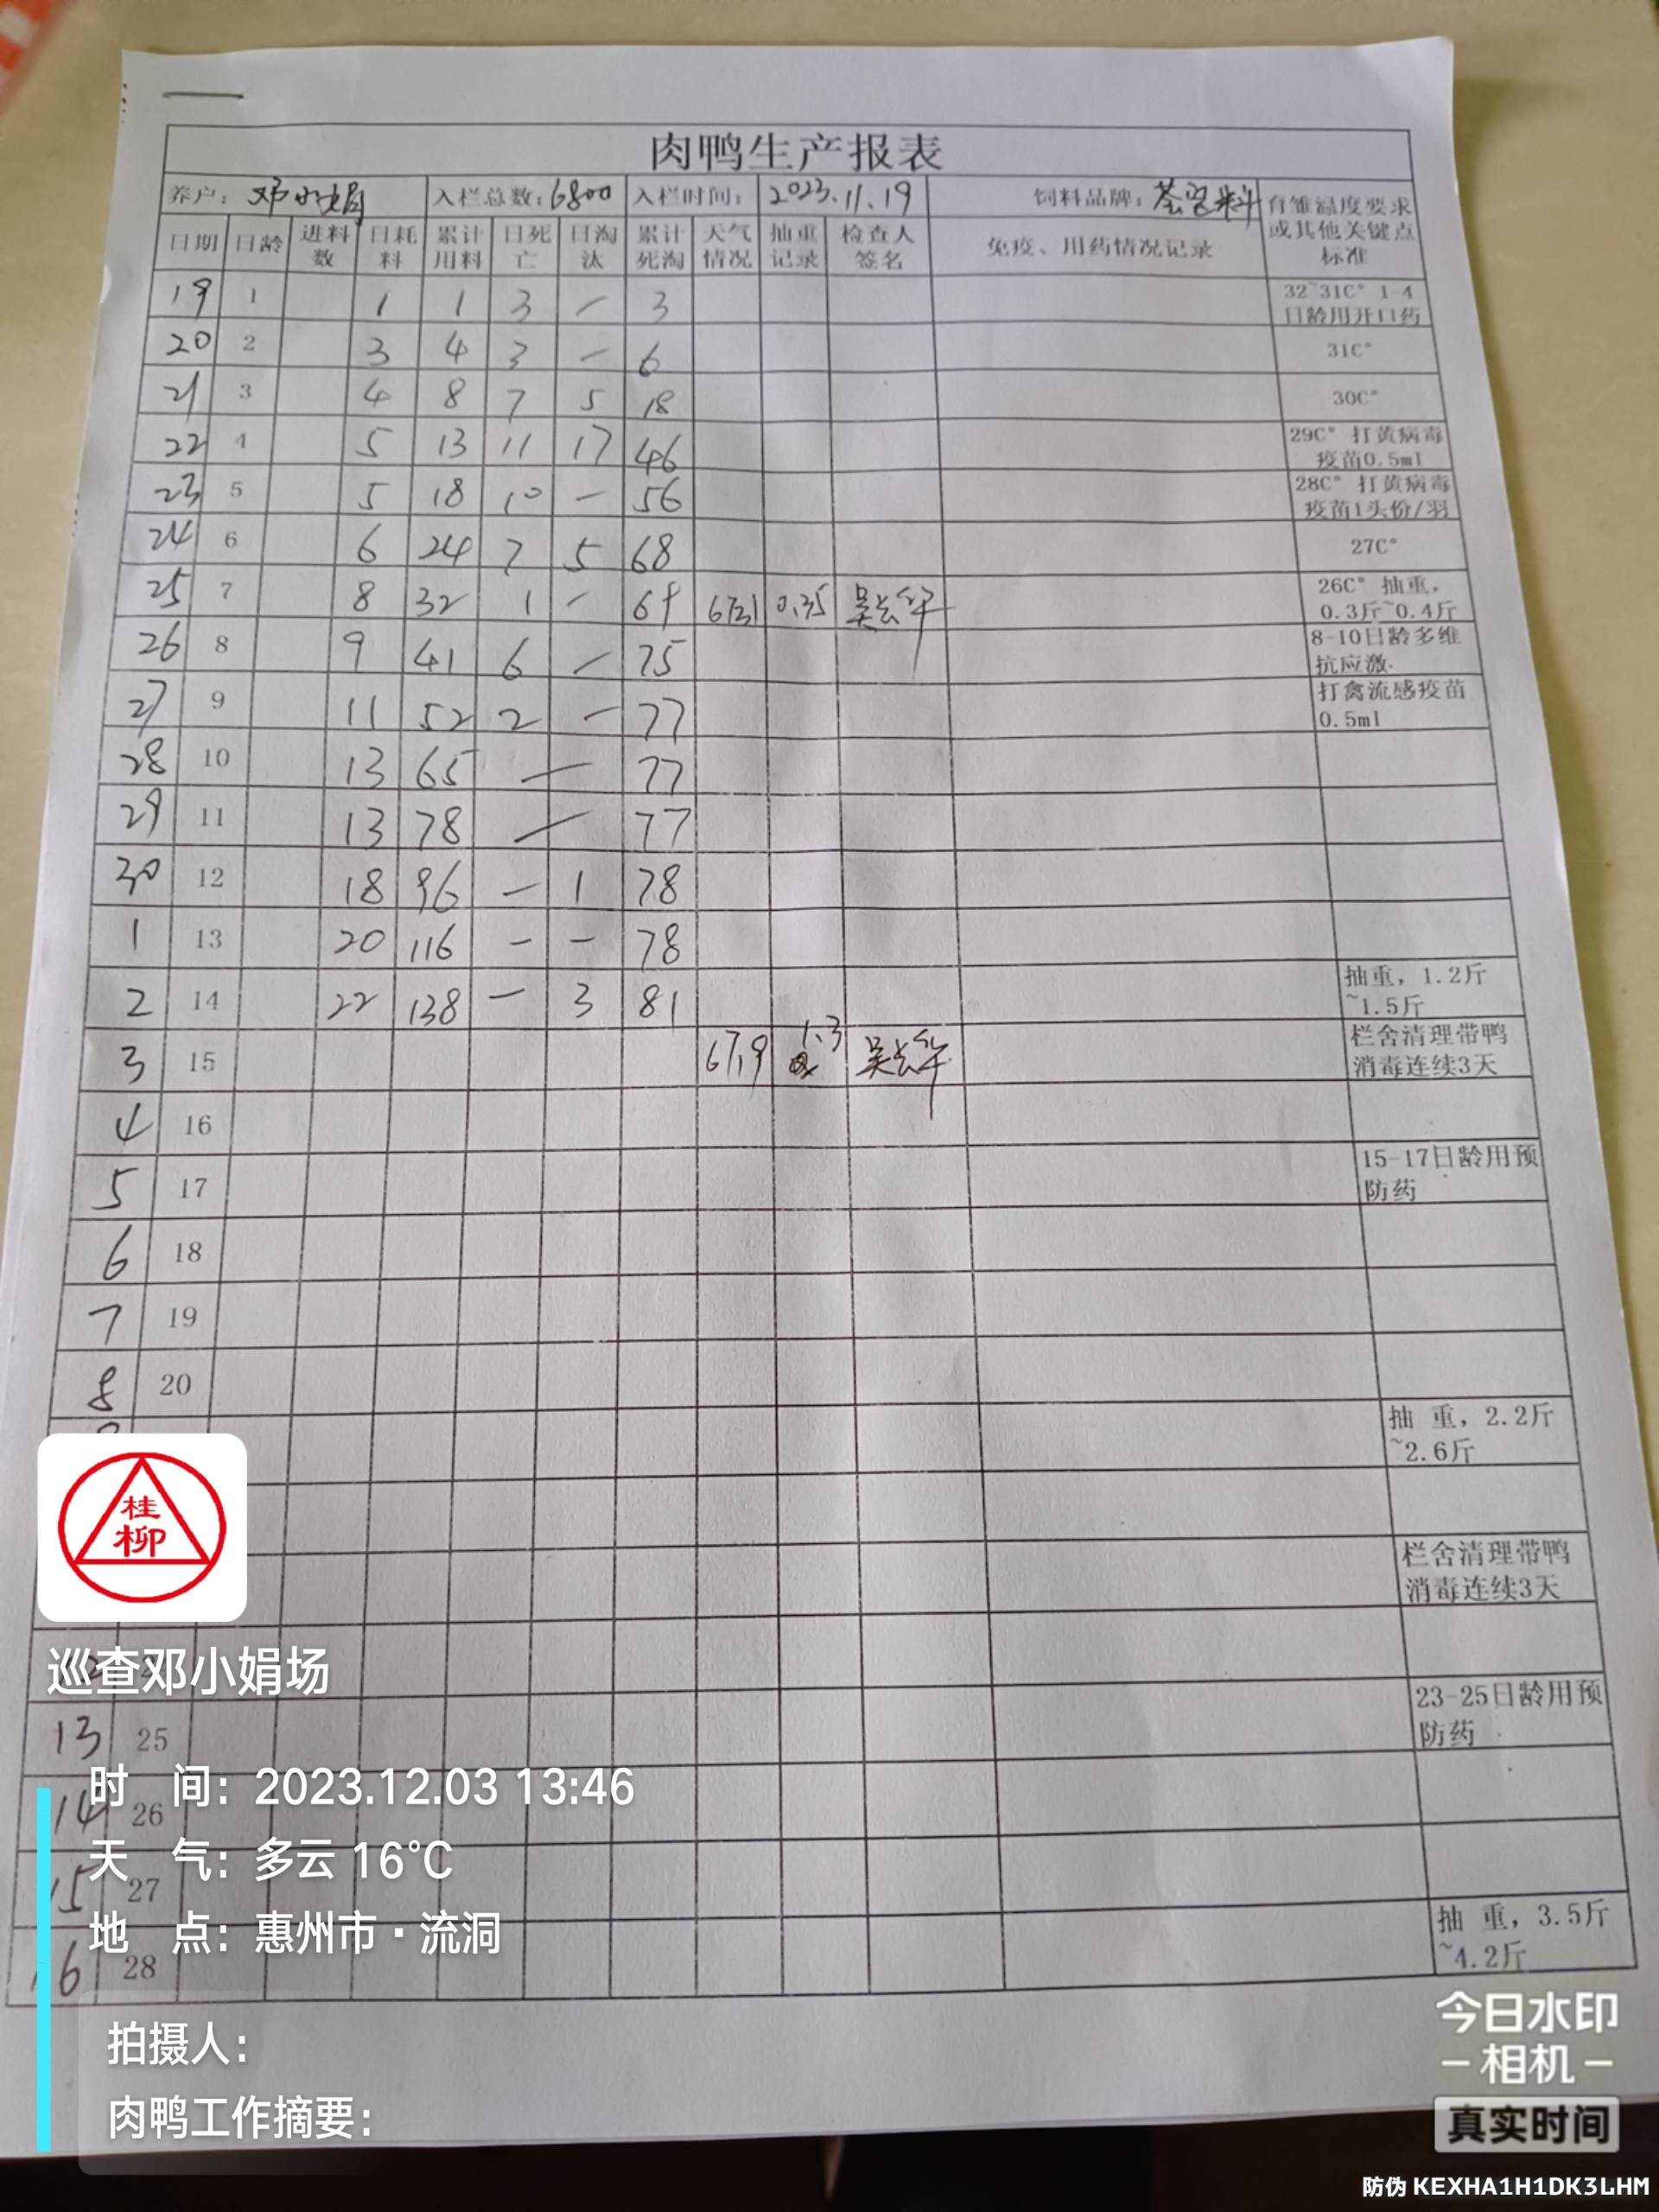 肉鸭生产报表
养户：邓小娟 入栏总数：6800 入栏时间： 2023.11.19 饲料品牌： 育雏温度要求或其他关键点标准
日期 日龄 进料数 日耗料 累计用料 日死亡 日淘汰 累计死淘 天气情况 抽重记录 检查人签名 免疫、用药情况记录
19 1 1 1 3 - 3 32~31C° 1-4日龄用开口药
20 2 3 4 3 - 6 31C°
21 3 4 8 7 5 18 30C°
22 4 5 13 11 17 46 29C° 打黄病毒疫苗0.5ml
23 5 5 18 10 - 56 28C° 打黄病毒疫苗1头份/羽
24 6 6 24 7 5 68 27C°
25 7 8 32 1 - 69 6731 0.35 26C° 抽重，0.3斤~0.4斤
26 8 9 41 6 - 75 8-10日龄多维抗应激.
27 9 11 52 2 - 77 打禽流感疫苗0.5ml
28 10 13 65 — 77
29 11 13 78 — 77
30 12 18 96 - 1 78
1 13 20 116 - - 78
2 14 22 138 - 3 81 抽重，1.2斤~1.5斤
3 15 6719 1.3 栏舍清理带鸭消毒连续3天
4 16
5 17 15-17日龄用预防药
6 18
7 19
8 20
抽 重，2.2斤~2.6斤
栏舍清理带鸭消毒连续3天
13 25 23-25日龄用预防药
14 26
15 27
16 28 抽 重，3.5斤~4.2斤
桂柳
巡查邓小娟场
时 间：2023.12.03 13:46
天 气：多云 16℃
地 点：惠州市·流洞
拍摄人：
肉鸭工作摘要：
今日水印
-相机-
真实时间
防伪 KEXHA1H1DK3LHM